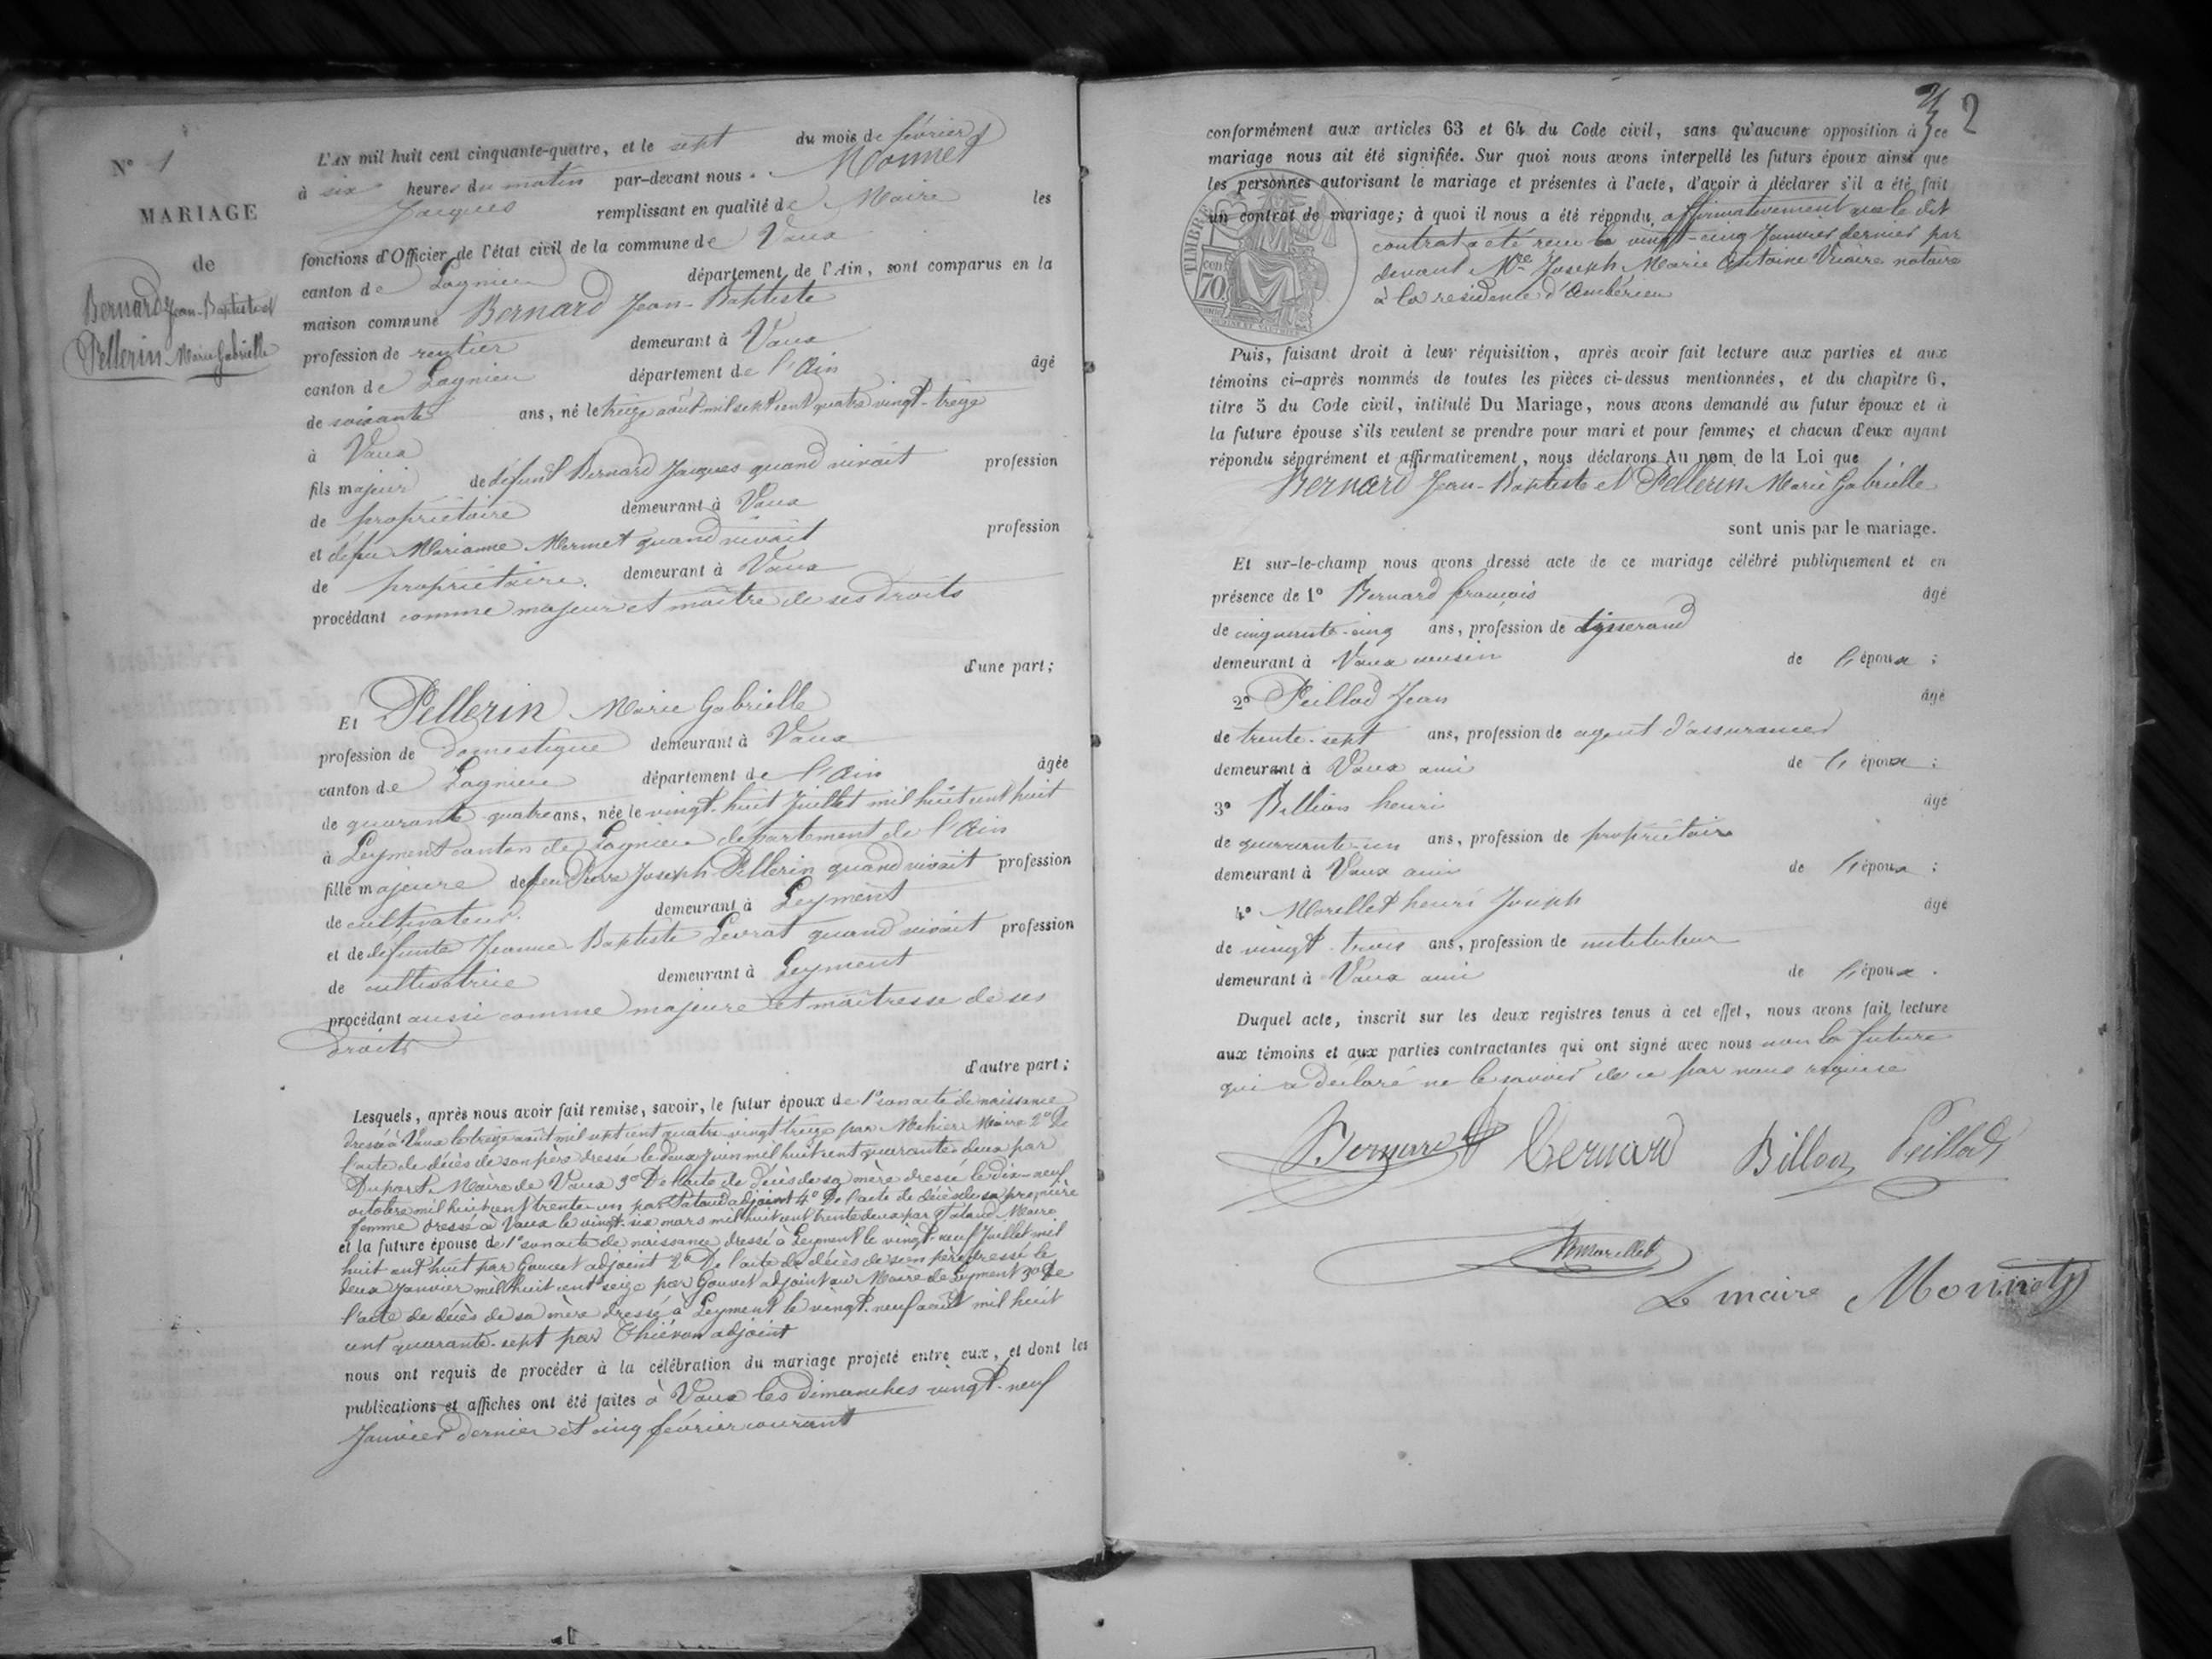 N° 1
MARIAGE
de
Bernard Jean-Baptiste et
Pellerin Marie Gabrielle
L'AN mil huit cent cinquante-quatre, et le sept du mois de février
à six heures du matin par-devant nous Monnet
Jacques remplissant en qualité de Maire les
fonctions d'Officier de l'état civil de la commune de Vaux
canton de Lagnieu département de l'Ain, sont comparus en la
maison commune Bernard Jean-Baptiste
profession de rentier demeurant à Vaux
canton de Lagnieu département de l'Ain âgé
de soixante ans, né le treize août mil sept cent quatre vingt-treize
à Vaux
fils majeur de défunt Bernard Jacques quand vivait profession
de propriétaire demeurant à Vaux
et de feu Marianne Mermet quand vivait profession
de propriétaire. demeurant à Vaux
procédant comme majeur et maître de ses droits
d'une part;
Et Pellerin Marie Gabrielle
profession de domestique demeurant à Vaux
canton de Lagnieu département de l'Ain âgée
de quarante-quatre ans, née le vingt-huit Juillet mil huit cent huit
à Leyment canton de Lagnieu département de l'Ain
fille majeure de feu Pierre Joseph Pellerin quand vivait profession
de cultivateur. demeurant à Leyment
et de défunte Jeanne-Baptiste Levrat quand vivait profession
de cultivatrice demeurant à Leyment
procédant aussi comme majeure et maîtresse de ses
droits
d'autre part;
Lesquels, après nous avoir fait remise, savoir, le futur époux de 1° son acte de naissance
dressé à Vaux le treize août mil sept cent quatre vingt treize par Maire 2° De
l'acte de décès de son père dressé le deux Juin mil huit cent quarante deux par
Dupart Maire de Vaux 3° De l'acte de décès de sa mère dressé le dix-neuf
octobre mil huit cent trente-un par adjoint 4° De l'acte de décès de sa première
femme dressé à Vaux le vingt-six mars mil huit cent trente deux par Maire
et la future épouse de 1° son acte de naissance dressé à Leyment le vingt-neuf Juillet mil
huit cent huit par adjoint 2° De l'acte de décès de son père dressé le
deux Janvier mil huit cent seize par adjoint au Maire de Leyment 3° De
l'acte de décès de sa mère dressé à Leyment le vingt-neuf août mil huit
cent quarante-sept par adjoint
nous ont requis de procéder à la célébration du mariage projeté entre eux, et dont les
publications et affiches ont été faites à Vaux les dimanches vingt-neuf
Janvier dernier et cinq février courant
2
conformément aux articles 63 et 64 du Code civil, sans qu'aucune opposition à ce
mariage nous ait été signifiée. Sur quoi nous avons interpellé les futurs époux ainsi que
les personnes autorisant le mariage et présentes à l'acte, d'avoir à déclarer s'il a été fait
un contrat de mariage; à quoi il nous a été répondu affirmativement que le dit
contrat a été reçu le vingt-cinq Janvier dernier par
devant Mre Joseph Marie Antoine notaire
à la residence d'Ambérieu
TIMBRE
cen
70
Puis, faisant droit à leur réquisition, après avoir fait lecture aux parties et aux
témoins ci-après nommés de toutes les pièces ci-dessus mentionnées, et du chapitre 6,
titre 5 du Code civil, intitulé Du Mariage, nous avons demandé au futur époux et à
la future épouse s'ils veulent se prendre pour mari et pour femme; et chacun d'eux ayant
répondu séparément et affirmativement, nous déclarons Au nom de la Loi que
Bernard Jean-Baptiste et Pellerin Marie Gabrielle
sont unis par le mariage.
Et sur-le-champ nous avons dressé acte de ce mariage célébré publiquement et en
présence de 1° Bernard françois âgé
de cinquante-cinq ans, profession de tisserand
demeurant à Vaux cousin de l'époux ;
2° Peillod Jean âgé
de trente-sept ans, profession de agent d'assurances
demeurant à Vaux ami de l'époux ;
3° Billion henri âgé
de quarante-un ans, profession de propriétaire
demeurant à Vaux ami de l'époux ;
4° Morellet henri Joseph âgé
de vingt-trois ans, profession de instituteur
demeurant à Vaux ami de l'époux .
Duquel acte, inscrit sur les deux registres tenus à cet effet, nous avons fait lecture
aux témoins et aux parties contractantes qui ont signé avec nous non la future
qui a déclaré ne le savoir de ce par nous requise
Bernard Bernard Billon Peillod
Morellet
Le maire Monnet